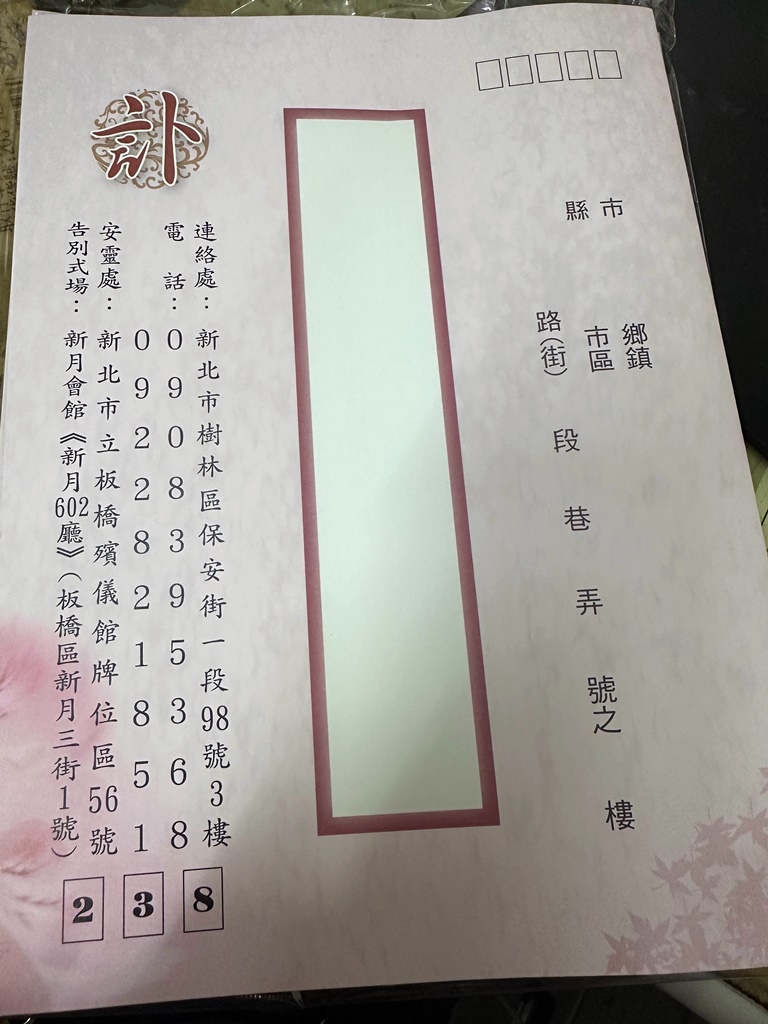 市
縣
鄉鎮
市區
路(街)
段
巷
弄
號之
樓
訃
連絡處：新北市樹林區保安街一段98號3樓
電話：0908395368
0922821851
安靈處：新北市立板橋殯儀館牌位區56號
告別式場：新月會館《新月602廳》（板橋區新月三街1號）
238